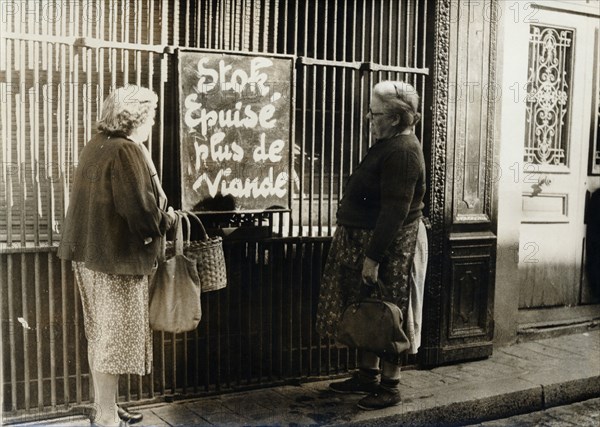 Stok
Epuisé
plus de
Viande